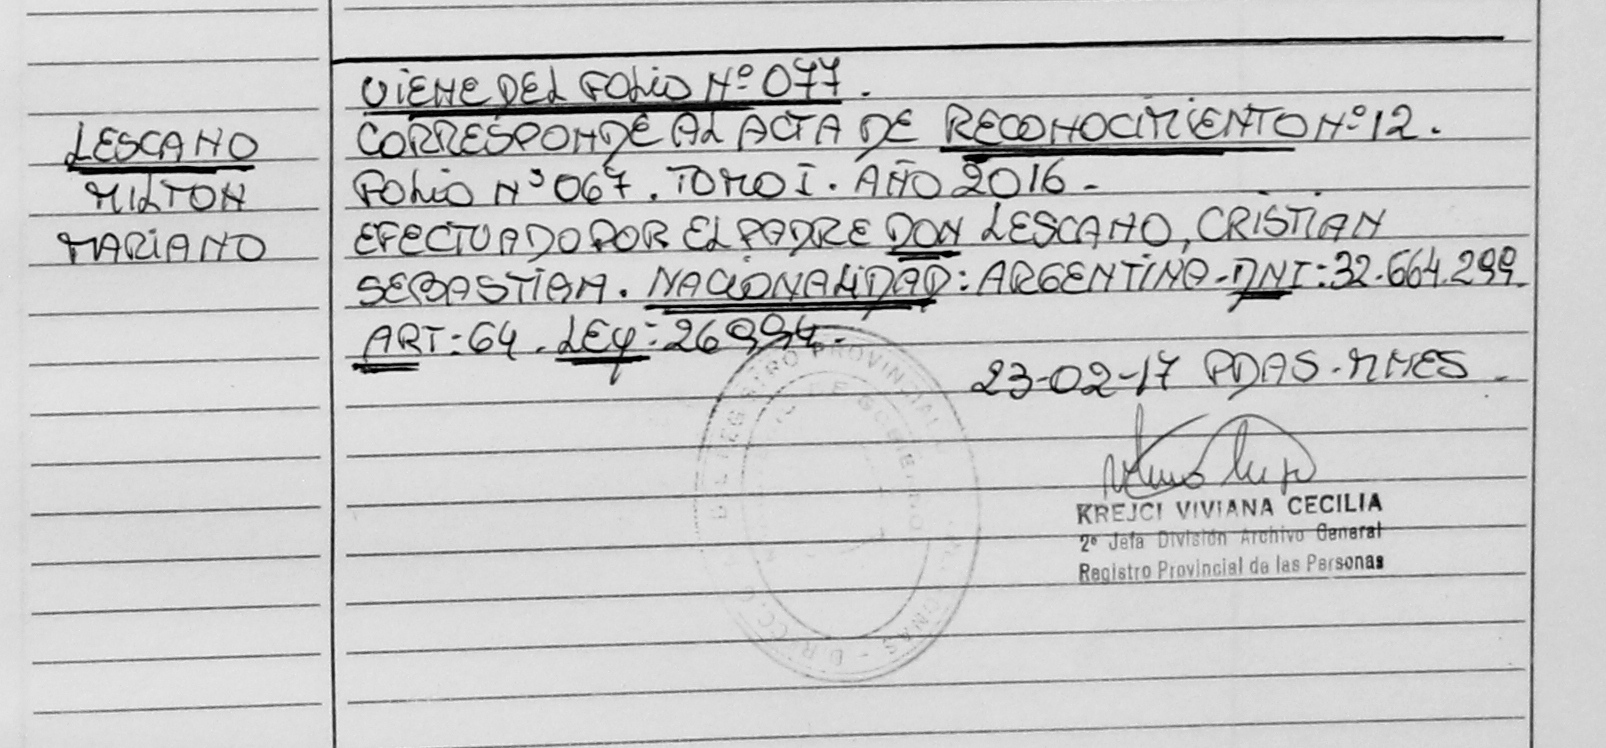 LESCANO
MILTON
MARIANO
VIENE DEL FOLIO Nº 077.
CORRESPONDE AL ACTA DE RECONOCIMIENTO Nº 12.
FOLIO Nº 067. TOMO I. AÑO 2016-
EFECTUADO POR EL PADRE DON LESCANO, CRISTIAN
SEBASTIAN. NACIONALIDAD: ARGENTINA-DNI: 32.664.299.
ART: 64. LEY: 26994.-
23-02-17 PDAS. MNES
KREJCI VIVIANA CECILIA
2º Jefa División Archivo General
Registro Provincial de las Personas
REGISTRO PROVINCIAL
DE GOBIERNO